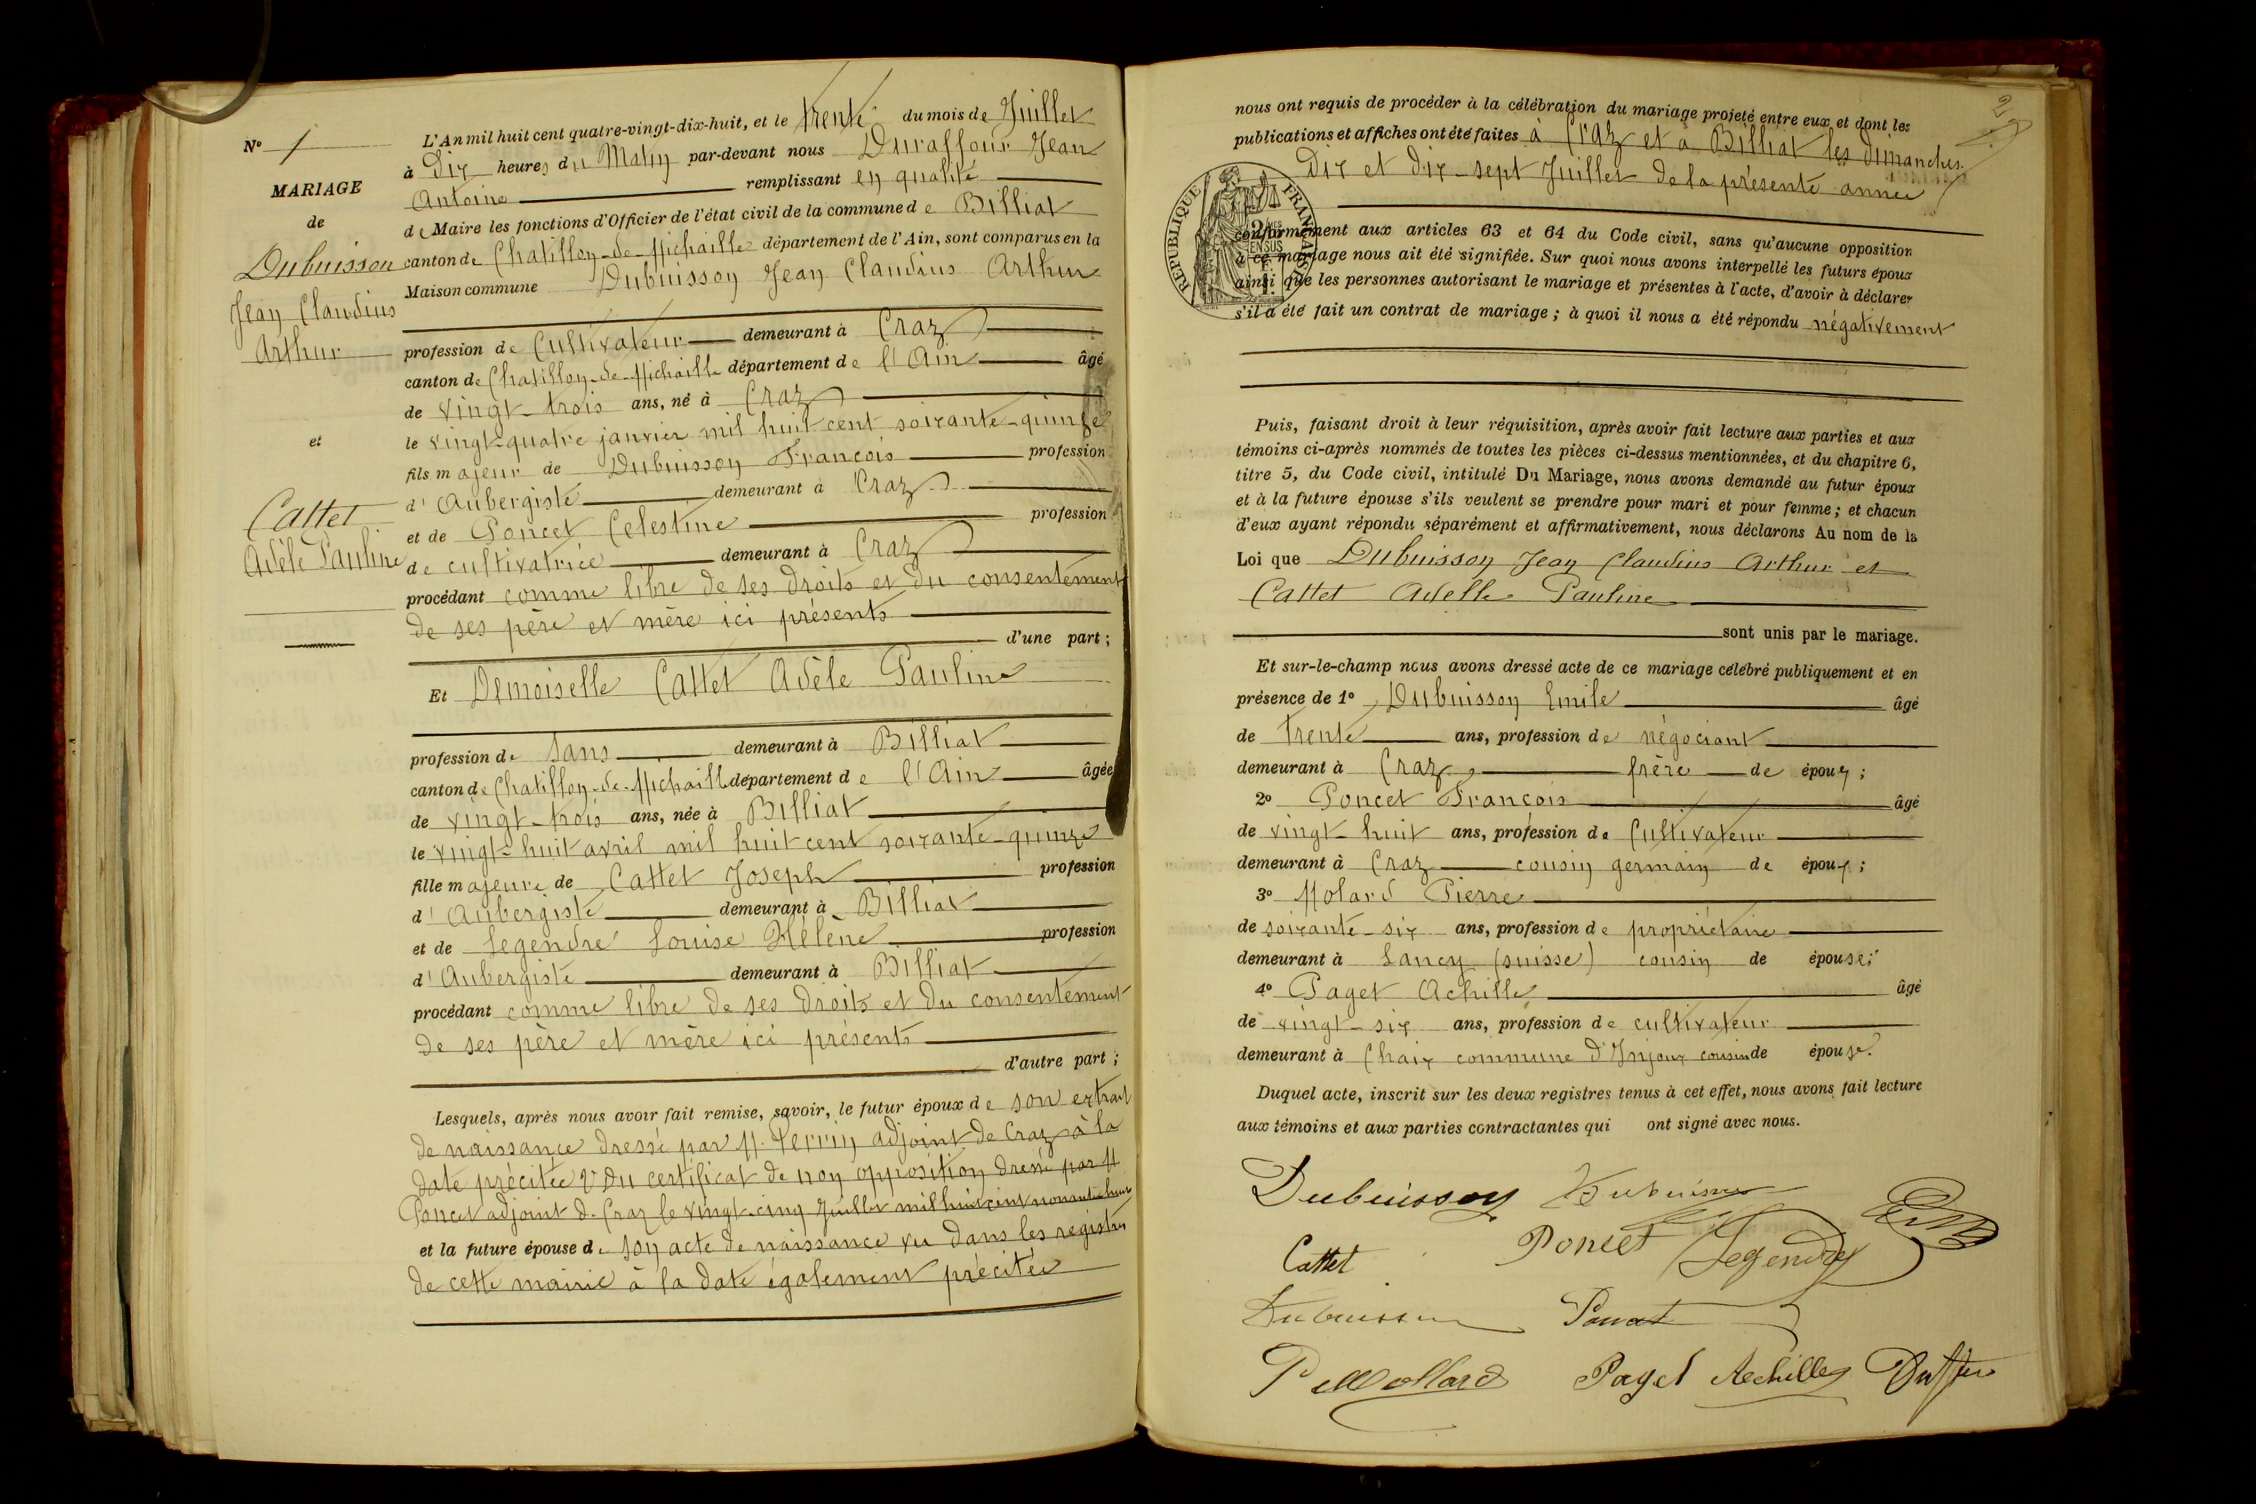 N° 1
MARIAGE
de
Dubuisson
Jean Claudius
Arthur
et
Cattet
Adèle Pauline
L'An mil huit cent quatre-vingt-dix-huit, et le trente du mois de Juillet
à Dix heures du Matin par-devant nous Duraffour Jean
Antoine remplissant en qualité
de Maire les fonctions d'Officier de l'état civil de la commune de Billiat
canton de Chatillon-de-Michaille département de l'Ain, sont comparus en la
Maison commune Dubuisson Jean Claudius Arthur
profession de Cultivateur demeurant à Craz
canton de Chatillon-de-Michaille département de l'Ain âgé
de vingt-trois ans, né à Craz
le vingt-quatre janvier mil huit cent soixante-quinze
fils majeur de Dubuisson François profession
d'Aubergiste demeurant à Craz
et de Poncet Celestine profession
de cultivatrice demeurant à Craz
procédant comme libre de ses droits et du consentement
de ses père et mère ici présents
d'une part ;
Et Demoiselle Cattet Adèle Pauline
profession de sans demeurant à Billiat
canton de Chatillon-de-Michaille département de l'Ain âgée
de vingt-trois ans, née à Billiat
le vingt-huit avril mil huit cent soixante-quinze
fille majeure de Cattet Joseph profession
d'Aubergiste demeurant à Billiat
et de Legendre Louise Hélène profession
d'Aubergiste demeurant à Billiat
procédant comme libre de ses droits et du consentement
de ses père et mère ici présents
d'autre part ;
Lesquels, après nous avoir fait remise, savoir, le futur époux de son extrait
de naissance dressé par M. Perrin adjoint de Craz à la
date précitée 2° Du certificat de non opposition dressé par M
Poncet adjoint de Craz le vingt-cinq Juillet mil huit cent nonante huit
et la future épouse de son acte de naissance vu dans les registres
de cette mairie à la date également précitée
2
nous ont requis de procéder à la célébration du mariage projeté entre eux et dont les
publications et affiches ont été faites à Craz et à Billiat les dimanches
Dix et Dix-sept Juillet de la présente année
RÉPUBLIQUE FRANÇAISE
conformément aux articles 63 et 64 du Code civil, sans qu'aucune opposition
à ce mariage nous ait été signifiée. Sur quoi nous avons interpellé les futurs époux
ainsi que les personnes autorisant le mariage et présentes à l'acte, d'avoir à déclarer
s'il a été fait un contrat de mariage ; à quoi il nous a été répondu négativement
Puis, faisant droit à leur réquisition, après avoir fait lecture aux parties et aux
témoins ci-après nommés de toutes les pièces ci-dessus mentionnées, et du chapitre 6,
titre 5, du Code civil, intitulé Du Mariage, nous avons demandé au futur époux
et à la future épouse s'ils veulent se prendre pour mari et pour femme ; et chacun
d'eux ayant répondu séparément et affirmativement, nous déclarons Au nom de la
Loi que Dubuisson Jean Claudius Arthur et
Cattet Adelle Pauline
sont unis par le mariage.
Et sur-le-champ nous avons dressé acte de ce mariage célébré publiquement et en
présence de 1° Dubuisson Emile âgé
de trente ans, profession de négociant
demeurant à Craz frère de époux ;
2° Poncet François âgé
de vingt-huit ans, profession de Cultivateur
demeurant à Craz cousin germain de époux ;
3° Molard Pierre
de soixante-six ans, profession de propriétaire
demeurant à Lancy (suisse) cousin de épouse ;
4° Paget Achille âgé
de vingt-six ans, profession de cultivateur
demeurant à Chaix commune d'Injoux cousin de épouse.
Duquel acte, inscrit sur les deux registres tenus à cet effet, nous avons fait lecture
aux témoins et aux parties contractantes qui ont signé avec nous.
Dubuisson Dubuisson
Cattet Poncet Legendre
Dubuisson Poncet
P Mollard Paget Achille